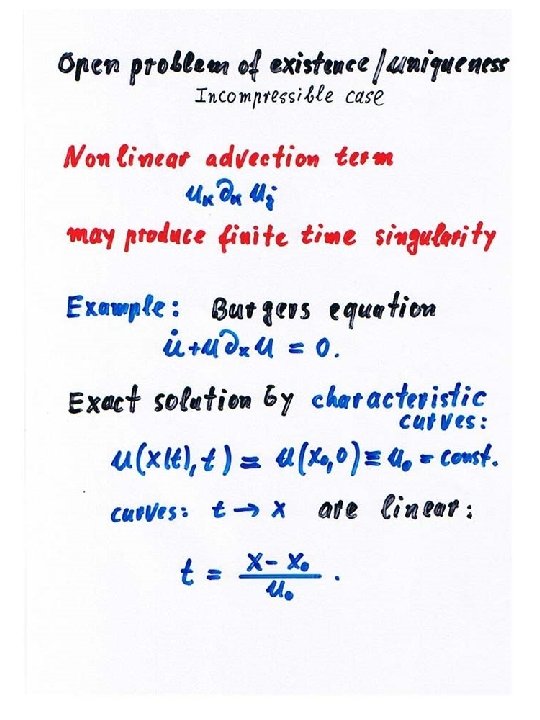 Open problem of existence/uniqueness
Incompressible case
Nonlinear advection term
uₖ∂ₖuⱼ
may produce finite time singularity
Example: Burgers equation
u̇+u∂ₓu = 0.
Exact solution by characteristic
curves:
u(x(t),t) = u(x₀,0) ≡ u₀ = const.
curves: t → x are linear:
t = (x - x₀)/u₀ .